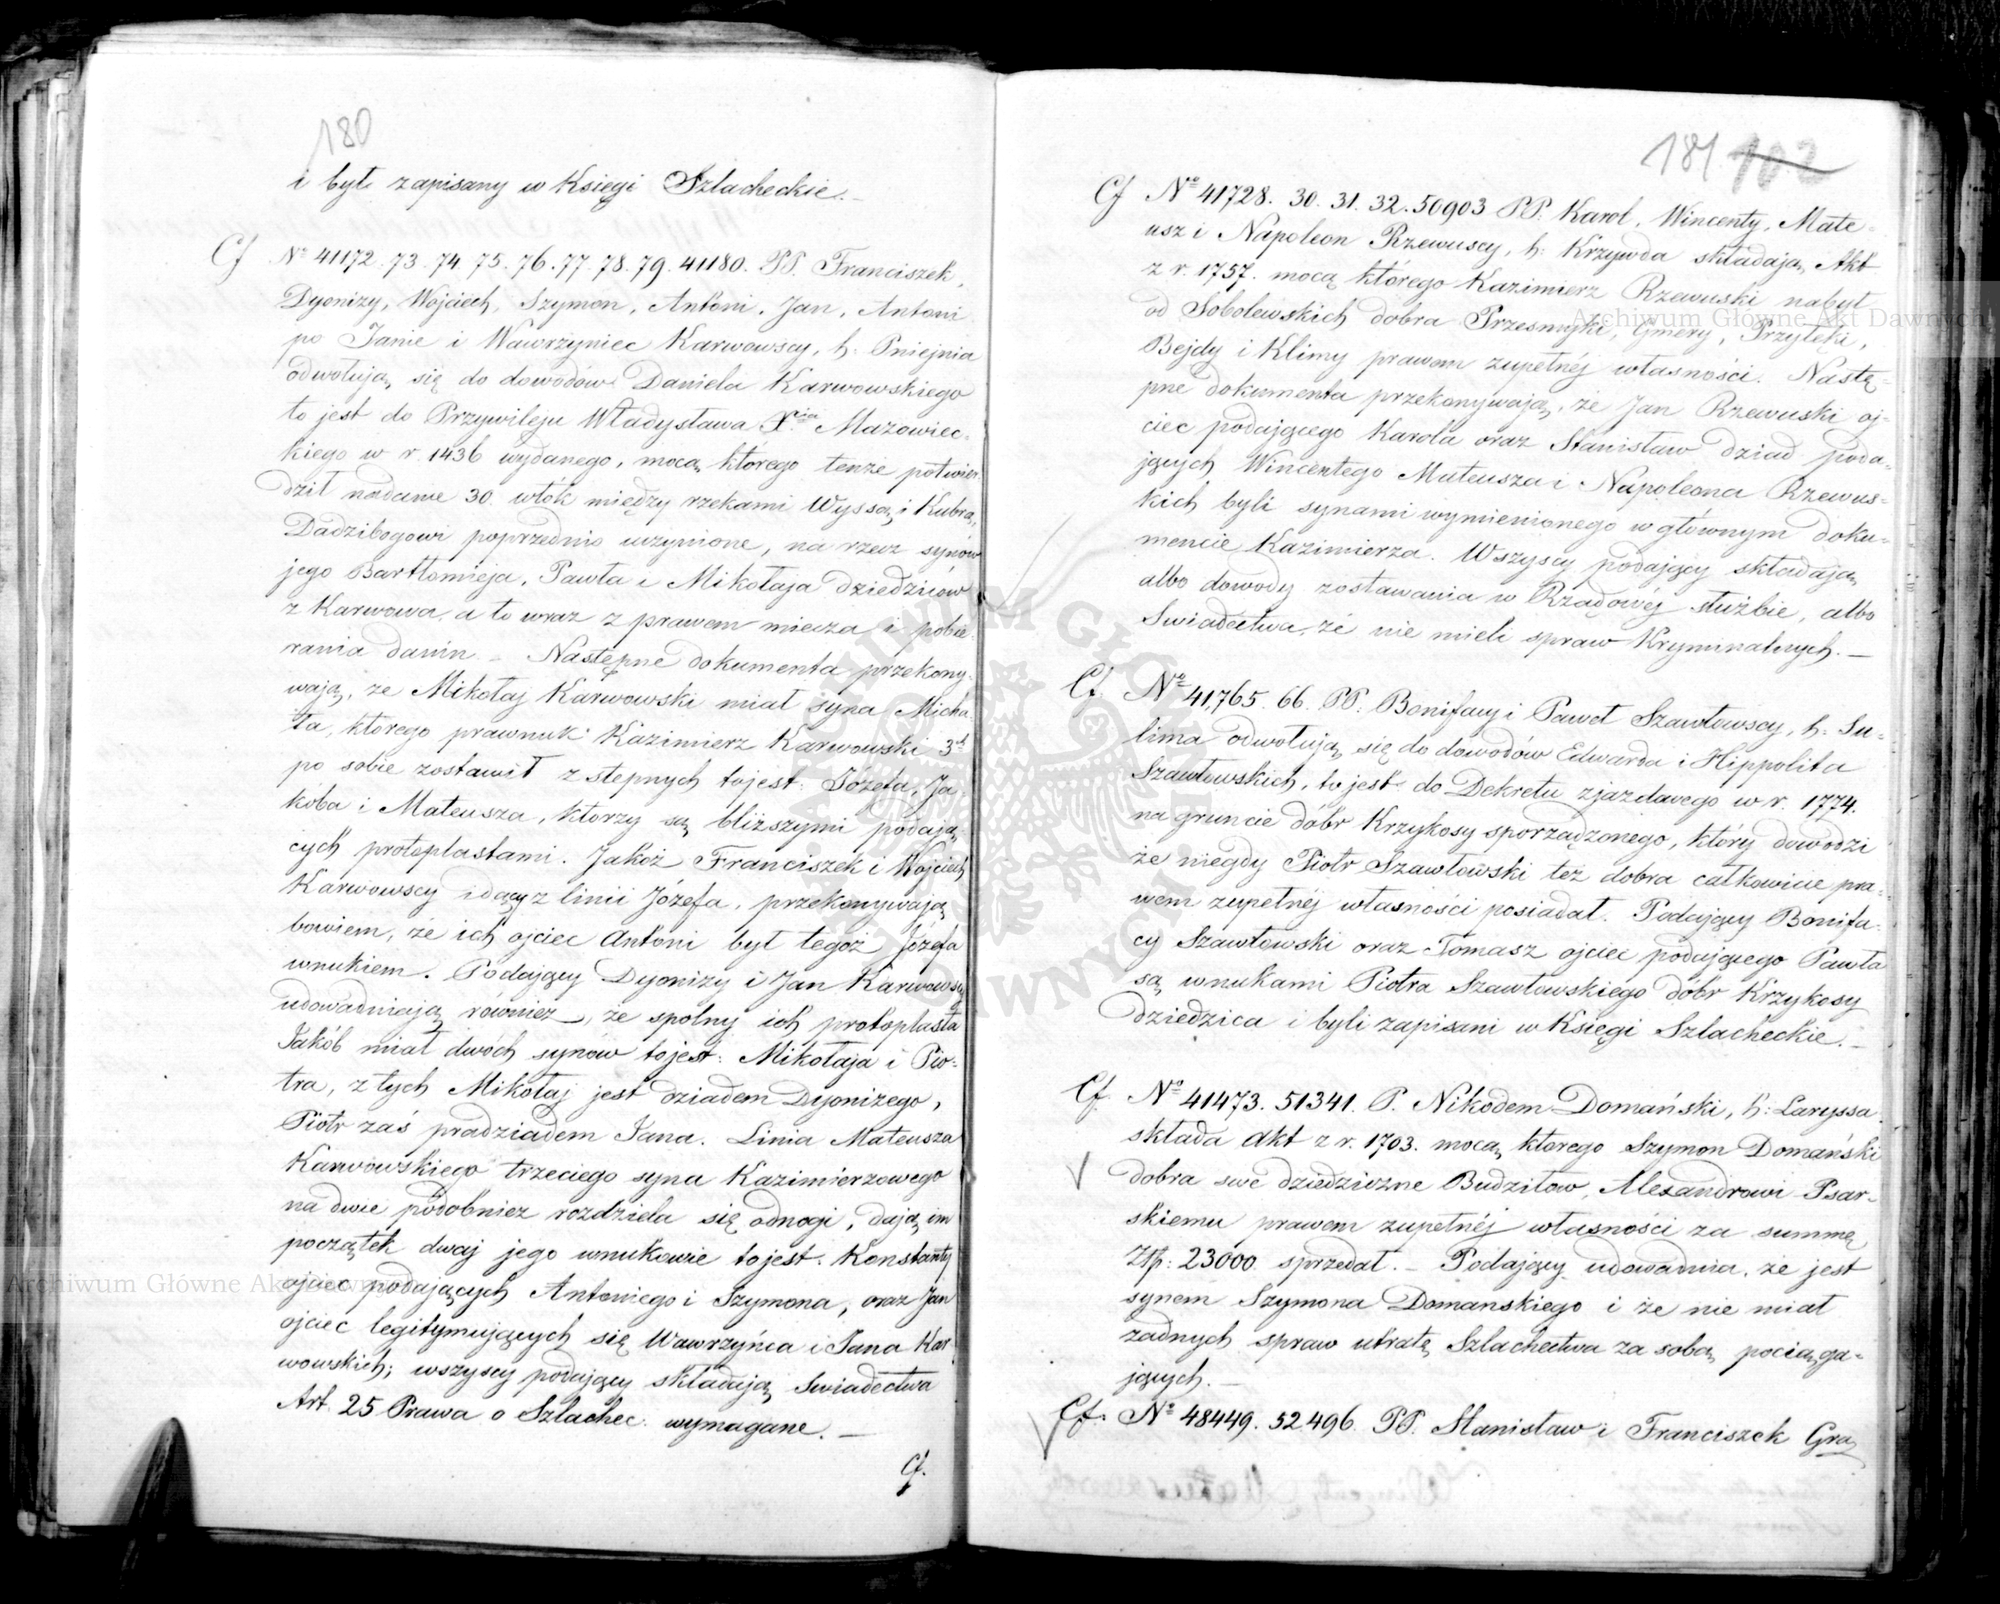 180
i był zapisany w Księgi Szlacheckie. —
Cf № 41172. 73. 74. 75. 76. 77. 78. 79. 41180. PP. Franciszek,
Dyonizy, Wojciech, Szymon, Antoni, Jan, Antoni
po Janie i Wawrzyniec Karwowscy, h: Pniejnia
odwołują się do dowodów Daniela Karwowskiego
to jest do Przywileju Władysława Xcia Mazowiec-
kiego w r. 1436 wydanego, mocą którego tenże potwier-
dził nadanie 30. włók między rzekami Wyssą i Kubrą,
Dadzibogowi poprzednio uczynione, na rzecz synów
jego Bartłomieja, Pawła i Mikołaja dziedziców
z Karwowa, a to wraz z prawem miecza i pobie-
rania danin. — Następne dokumenta przekony-
wają, że Mikołaj Karwowski miał syna Micha-
ła, którego prawnuk Kazimierz Karwowski 3ch
po sobie zostawił zstępnych tojest: Józefa, Ja-
kóba i Mateusza, którzy są bliższymi podają-
cych protoplastami. Jakoż Franciszek i Wojciech
Karwowscy idący z linii Józefa, przekonywają
bowiem, że ich ojciec Antoni był tegoż Józefa
wnukiem. Podający Dyonizy i Jan Karwowscy
udowadniają również, że spolny ich protoplasta
Jakób miał dwóch synów tojest: Mikołaja i Pio-
tra, z tych Mikołaj jest dziadem Dyonizego,
Piotr zaś pradziadem Jana. Linia Mateusza
Karwowskiego trzeciego syna Kazimierzowego
na dwie podobnież rozdziela się odnogi, dają im
początek dwaj jego wnukowie tojest: Konstanty
ojciec podających Antoniego i Szymona, oraz Jan
ojciec legitymujących się Wawrzyńca i Jana Kar-
wowskich; wszyscy podający składają świadectwa
Art. 25 Prawa o Szlachec: wymagane. —
Cf.
181. 102
Cf № 41728. 30. 31. 32. 50903 PP. Karol, Wincenty, Mate-
usz i Napoleon Rzewuscy, h: Krzywda składają Akt
z r. 1757. mocą którego Kazimierz Rzewuski nabył
od Sobolewskich dobra Przesmyki, Gmery, Przyłęki,
Bejdy i Klimy prawem zupełnéj własności. Nastę-
pne dokumenta przekonywają, że Jan Rzewuski oj-
ciec podającego Karola oraz Stanisław dziad poda-
jących Wincentego Mateusza i Napoleona Rzewus-
kich byli synami wymienionego w głównym doku-
mencie Kazimierza. Wszyscy podający składają
albo dowody zostawania w Rządowéj służbie, albo
Świadectwa, że nie mieli spraw Kryminalnych. —
Cf. № 41,765. 66. PP. Bonifacy i Paweł Szawłowscy, h: Su-
lima odwołują się do dowodów Edwarda i Hippolita
Szawłowskich, to jest do Dekretu zjazdowego w r. 1774.
na gruncie dóbr Krzykosy sporządzonego, który dowodzi
że niegdy Piotr Szawłowski też dobra całkowicie pra-
wem zupełnéj własności posiadał. Podający Bonifa-
cy Szawłowski oraz Tomasz ojciec podającego Pawła
są wnukami Piotra Szawłowskiego dóbr Krzykosy
dziedzica i byli zapisani w Księgi Szlacheckie. —
Cf. № 41473. 51341. P. Nikodem Domański, h: Laryssa
składa Akt z r. 1703. mocą którego Szymon Domański
dobra swe dziedziczne Budziłow, Alexandrowi Psar-
skiemu prawem zupełnéj własności za summę
Złp: 23000 sprzedał. — Podający udowadnia, że jest
synem Szymona Domanskiego i że nie miał
żadnych spraw utratę Szlachectwa za sobą pociąga-
jących. —
Cf. № 48449. 52496. PP. Stanisław i Franciszek Gra
Archiwum Główne Akt Dawnych
Archiwum Główne Akt Dawnych